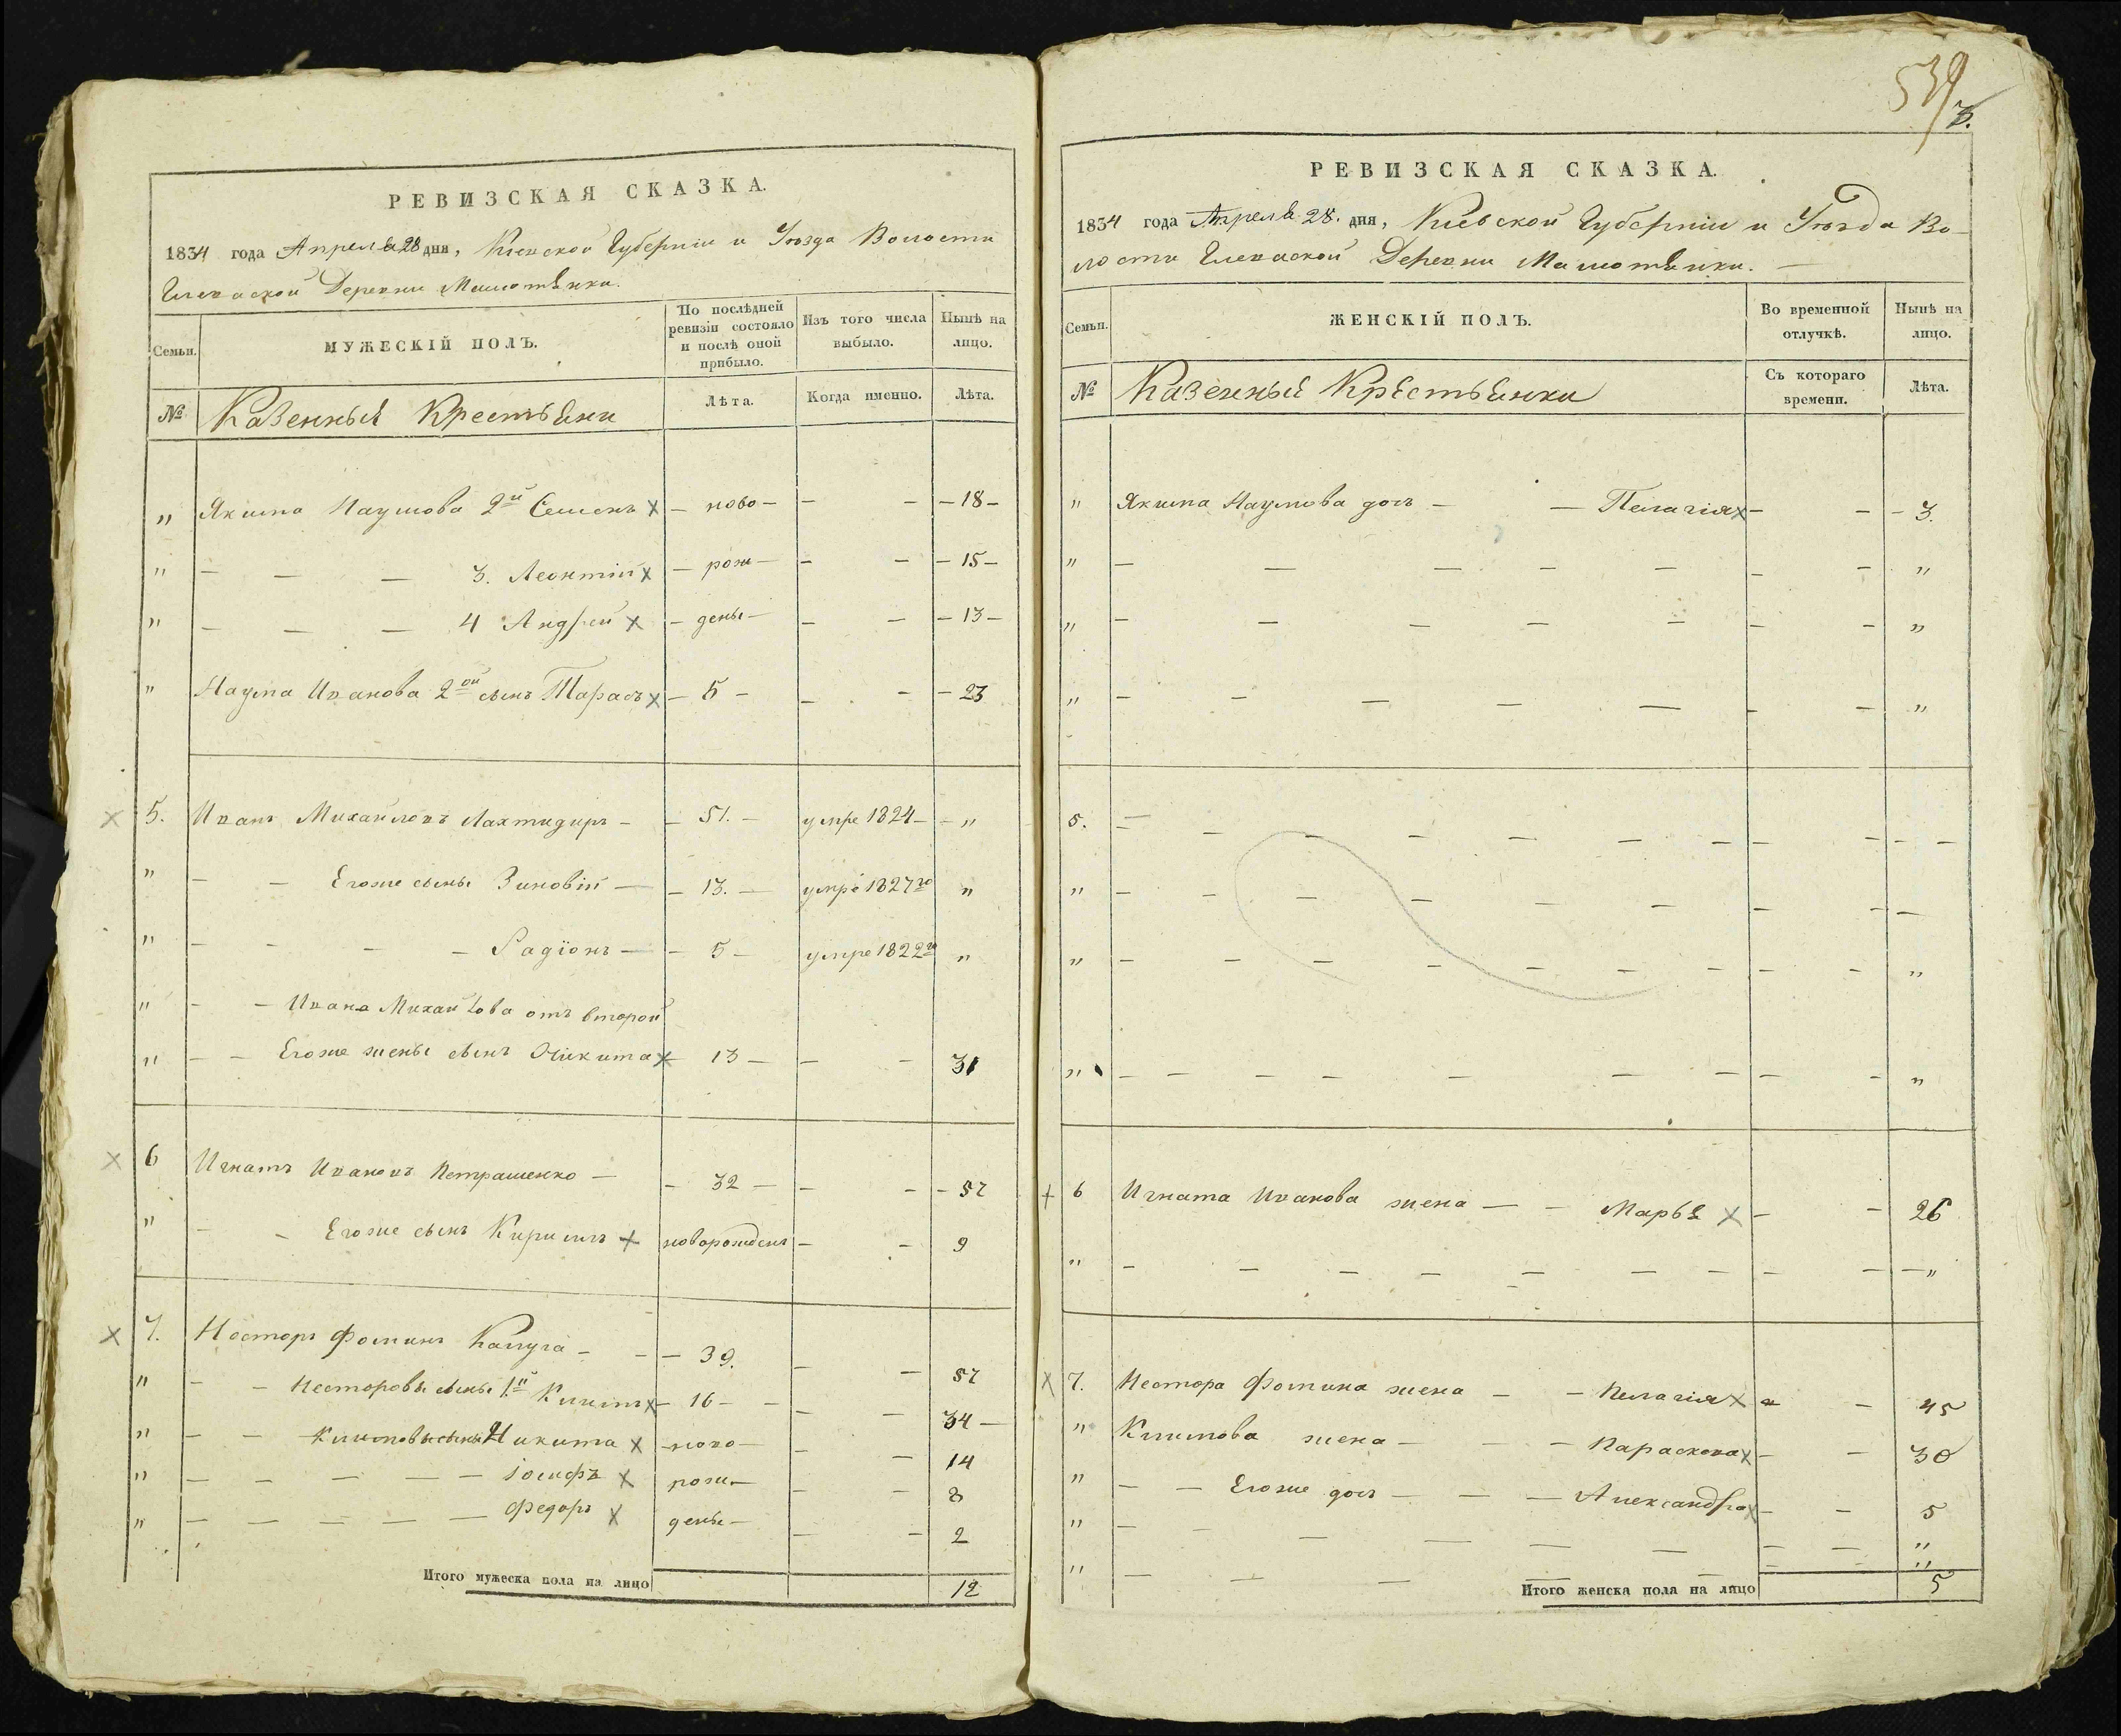 РЕВИЗСКАЯ СКАЗКА.
1834 года Апреля 28 дня, Киевской Губерніи и Уѣзда Волости
Деревни
Семьи.
МУЖЕСКІЙ ПОЛЪ.
По послѣдней ревизіи состояло и послѣ оной прибыло.
Изъ того числа выбыло.
Нынѣ на лицо.
№
Казенныя Крестьяни
Лѣта.
Когда именно.
Лѣта.
„ Якима Наумова 2й Семенъ х — ново — — — — 18 —
„ — — — 3. Леонтій х — рож — — — — 15 —
„ — — — 4 Андрей х — дены — — — — 13 —
„ Наума Иванова 2ой сынъ Тарасъ х — 5 — — — — 23
х 5. Иванъ Михайловъ Лахтидиръ — — 51. — умре 1824 — — „
„ — — Егоже сыны Зиновій — — 13. — умре 1827го „
„ — — — — Радіонъ — — 5 — умре 1822го „
„ — — Ивана Михайлова отъ второй
„ — — Егоже жены сынъ Никита х 13 — — — 31
х 6 Игнатъ Ивановъ Петрашенко — — 32 — — — — 57
„ — — Егоже сынъ Кирилъ х новорожденъ — — 9
х 7. Несторъ Фоминъ Калуга — — — 39. — — 57
„ — — Несторовы сыны 1й Климъ х — 16 — — — — 34 —
„ — — Климовы сыны Никита х — ново — — — 14
„ — — — — — Іосифъ х рож — — — 8
„ — — — — — Федоръ х дены — — — 2
Итого мужеска пола на лицо
12
539
3.
РЕВИЗСКАЯ СКАЗКА.
1834 года Апреля 28. дня, Киевской Губерніи и Уѣзда Во-
лости Деревни
Семьи.
ЖЕНСКІЙ ПОЛЪ.
Во временной отлучкѣ.
Нынѣ на лицо.
№
Казенныя Крестьянки
Съ котораго времени.
Лѣта.
„ Якима Наумова дочь — — Пелагія х — — — 3.
„ — — — — — — — „
„ — — — — — — — „
„ — — — — — — — „
5. — — — — — — — — — — —
„ — — — — — — — — —
„ — — — — — — — — — „
„ — — — — — — — — — „
х 6 Игната Иванова жена — — Марья х — — 26
„ — — — — — — — — — — „
х 7. Нестора Фомина жена — — Пелагія х — — 45
„ Климова жена — — — Парасковя х — — 30
„ — — Егоже дочь — — — Александра х — — 5
„ — — — — — — — — „
„ — — — — — — — „
Итого женска пола на лицо
5